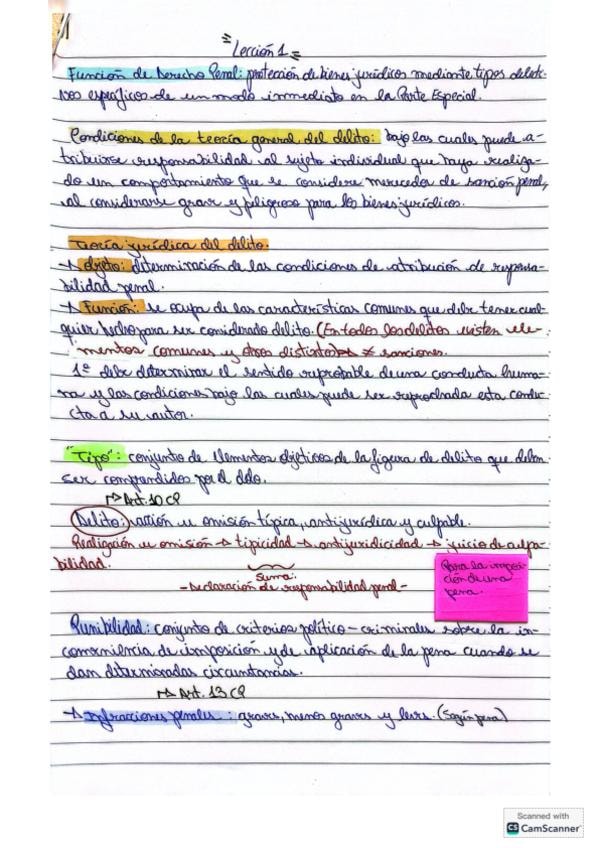 Lección 1
Función de Derecho Penal: protección de bienes jurídicos mediante tipos delicti-
vos específicos de un modo inmediato en la Parte Especial.
Condiciones de la teoría general del delito: bajo las cuales puede a-
tribuirse responsabilidad al sujeto individual que haya realiza-
do un comportamiento que se considere merecedor de sanción penal,
al considerarse grave y peligroso para los bienes jurídicos.
Teoría jurídica del delito.
→ Objeto: determinación de las condiciones de atribución de responsa-
bilidad penal.
→ Función: se ocupa de las características comunes que debe tener cual-
quier hecho para ser considerado delito. (En todos los delitos existen ele-
mentos comunes y otros distintos ≠ sanciones.
1º debe determinar el sentido reprobable de una conducta huma-
na y las condiciones bajo las cuales puede ser reprochada esta conduc-
cta a su autor.
"Tipo": conjunto de elementos objetivos de la figura de delito que deben
ser comprendidos por el dolo.
↳ Art. 10 CP
Delito: acción u omisión típica, antijurídica y culpable.
Realización u omisión → tipicidad → antijuridicidad → juicio de culpa-
bilidad.
suma:
- Declaración de responsabilidad penal -
Para la imposi-
ción de una
pena.
Punibilidad: conjunto de criterios político-criminales sobre la in-
conveniencia de imposición y de aplicación de la pena cuando se
dan determinadas circunstancias.
↳ Art. 13 CP
→ Infracciones penales: graves, menos graves y leves. (Según pena)
Scanned with
CS CamScanner